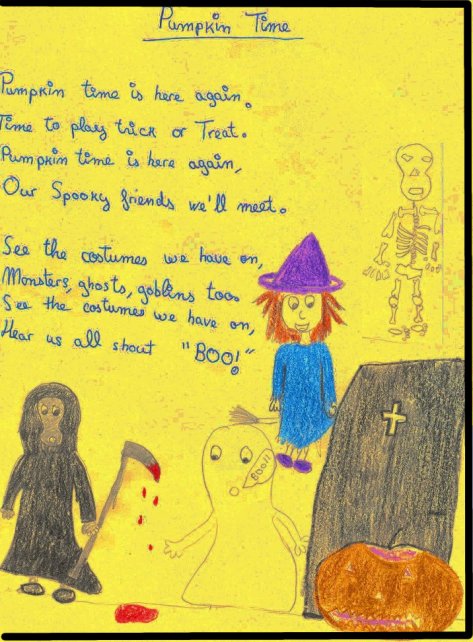 Pumpkin Time
Pumpkin time is here again.
Time to play trick or Treat.
Pumpkin time is here again,
Our Spooky friends we'll meet.
See the costumes we have on,
Monsters, ghosts, goblins too.
See the costumes we have on,
Hear us all shout "BOO!"
BOO!!